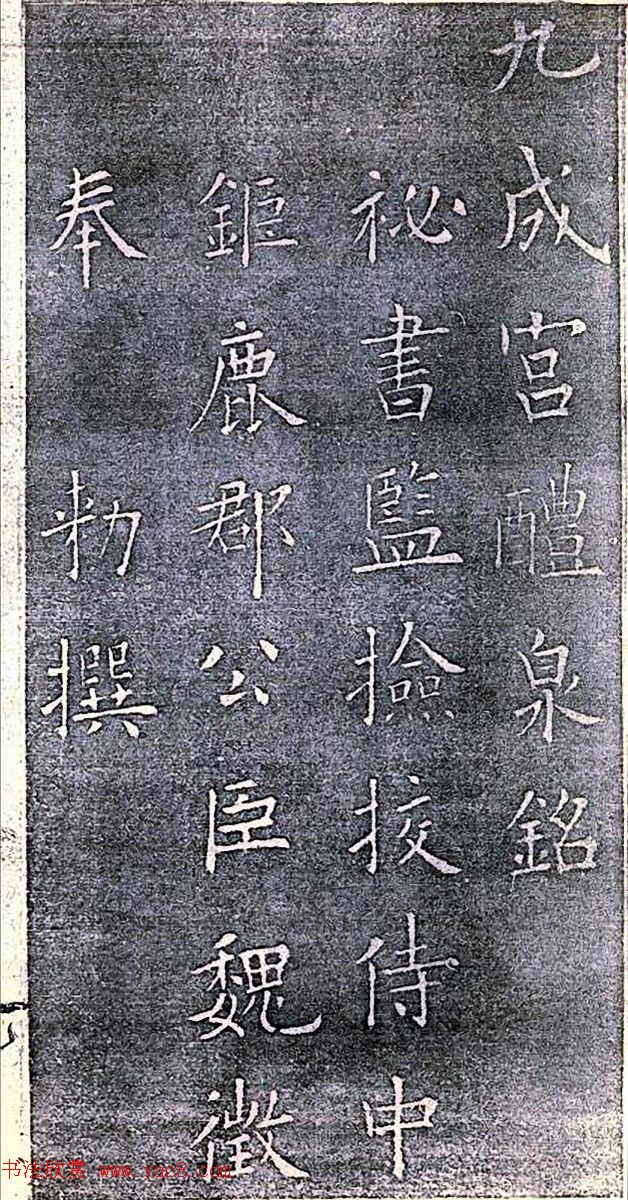 九成宮醴泉銘
祕書監撿挍侍中
鉅鹿郡公臣魏徵
奉勑撰
书法欣赏 www.yac8.com